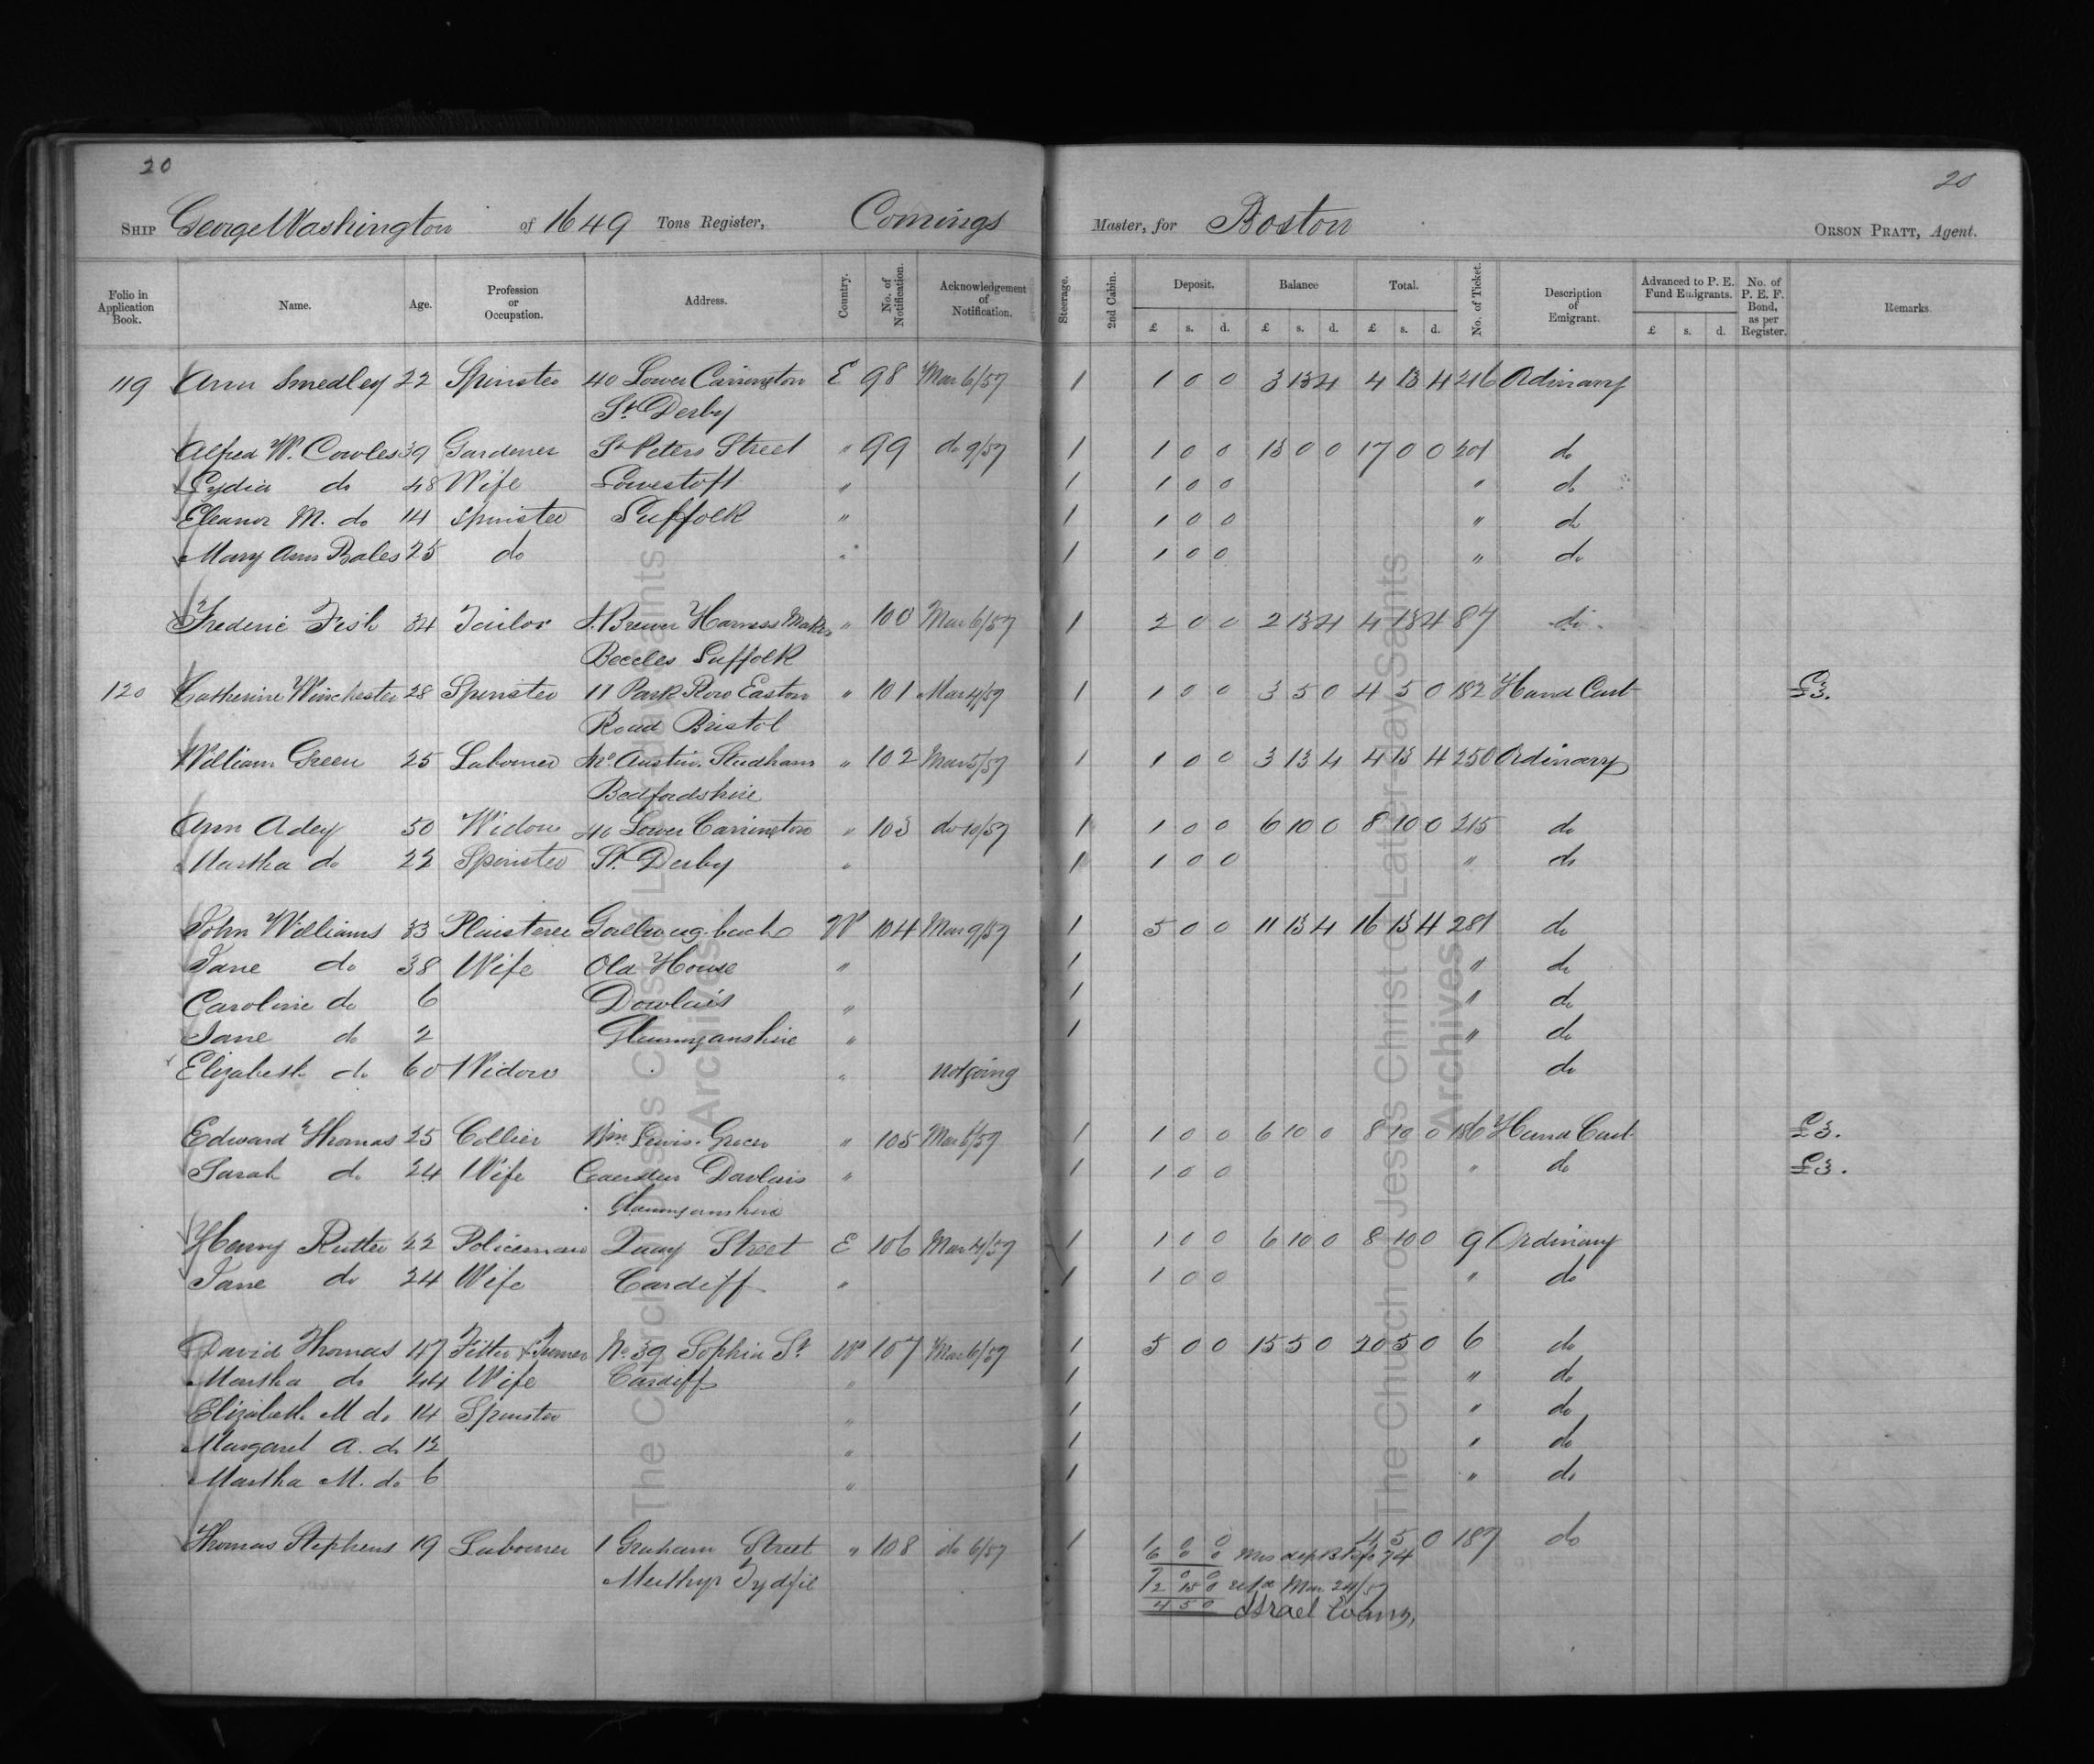 20 20
SHIP George Washington of 1649 Tons Register, Comings Master, for Boston ORSON PRATT, Agent.
Folio in Application Book. Name. Age. Profession or Occupation. Address. Country. No. of Notification. Acknowledgement of Notification. Steerage. 2nd Cabin. Deposit. Balance Total. No. of Ticket. Description of Emigrant. Advanced to P. E. Fund Emigrants. No. of P. E. F. Bond, as per Register. Remarks
£ s. d. £ s. d. £ s. d. £ s. d.
119 Ann Smedley 22 Spinster 40 Lower Carrington E 98 Mar 6/57 1 1 0 0 3 13 4 4 13 4 216 Ordinary
St Derby
Alfred W. Cowles 39 Gardener St Peters Street " 99 do 9/57 1 1 0 0 13 0 0 17 0 0 201 do
Lydia do 48 Wife Lowestoft " 1 1 0 0 " do
Eleanor M. do 14 Spinster Suffolk " 1 1 0 0 " do
Mary Ann Bales 25 do " 1 1 0 0 " do
Frederic Fish 34 Tailor J. Brewer Harness Maker " 100 Mar 6/57 1 2 0 0 2 13 4 4 13 4 87 do
Beccles Suffolk
120 Catherine Winchester 28 Spinster 11 Park Row Easton " 101 Mar 4/57 1 1 0 0 3 5 0 4 5 0 182 Hand Cart £3.
Road Bristol
William Green 25 Labourer Mr Austin. Studham " 102 Mar 5/57 1 1 0 0 3 13 4 4 13 4 250 Ordinary
Bedfordshire
Ann Adey 50 Widow 40 Lower Carrington " 103 do 10/57 1 1 0 0 6 10 0 8 10 0 215 do
Martha do 22 Spinster St. Derby " 1 1 0 0 " do
John Williams 33 Plaisterer W 104 Mar 9/57 1 5 0 0 11 13 4 16 13 4 281 do
Jane do 38 Wife Old House " 1 " do
Caroline do 6 Dowlais " 1 " do
Jane do 2 Glamorganshire " 1 " do
Elizabeth do 60 Widow " not going do
Edward Thomas 25 Collier Wm Lewis. Grocer " 105 Mar 6/57 1 1 0 0 6 10 0 8 10 0 186 Hand Cart £3.
Sarah do 24 Wife Dowlais " 1 1 0 0 " do £3.
Glamorganshire
Henry Rutter 22 Policeman Quay Street E 106 Mar 4/57 1 1 0 0 6 10 0 8 10 0 9 Ordinary
Jane do 24 Wife Cardiff " 1 1 0 0 " do
David Thomas 47 Fitter & Turner No 39 Sophia St W 107 Mar 6/57 1 5 0 0 15 5 0 20 5 0 6 do
Martha do 44 Wife Cardiff " 1 " do
Elizabeth M do 14 Spinster " 1 " do
Margaret A. do 12 " 1 " do
Martha M. do 6 " 1 " do
Thomas Stephens 19 Labourer 1 Graham Street " 108 do 6/57 1 1 0 0 4 5 0 187 do
6 0 0 74
Merthyr Tydfil 7 0 0
2 15 0 Mar 24/57
4 5 0 Israel Evans,
The Church of Jesus Christ of Latter-day Saints
Archives
The Church of Jesus Christ of Latter-day Saints
Archives